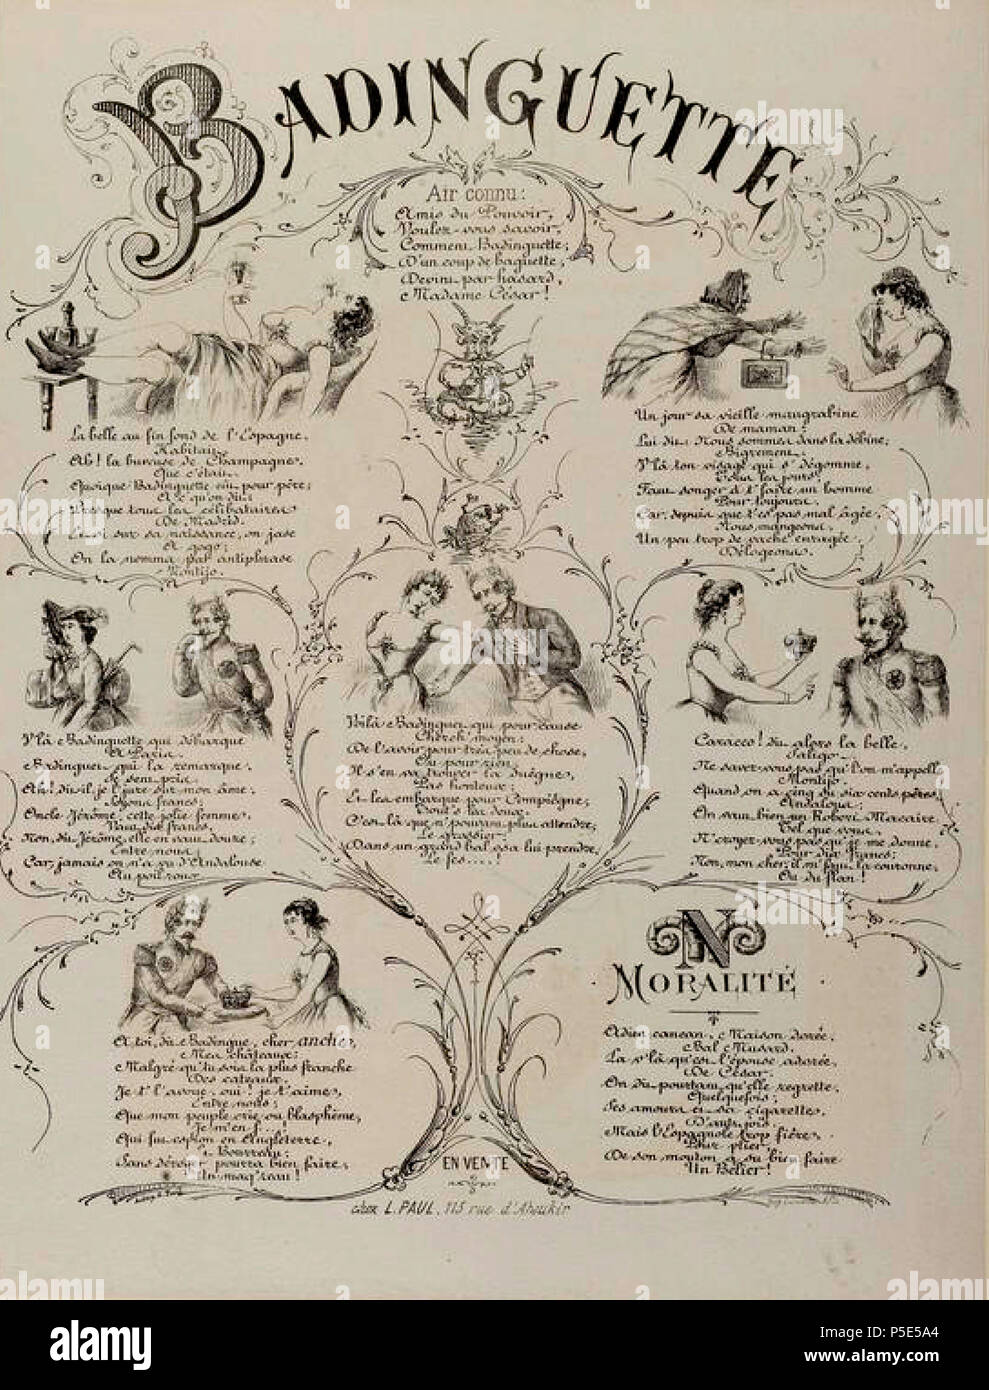 BADINGUETTE
Air connu:
Amis du Pouvoir,
Voulez-vous savoir,
Comment Badinguette;
D'un coup de baguette,
Devint par hasard,
Madame César!
La belle au fin fond de l'Espagne,
Habitait.
Ah! la buveuse de Champagne,
Que c'était
Quoique Badinguette eût pour père;
A ce qu'on dit
Presque tous les célibataires
De Madrid.
sur sa naissance, on jase
A gogo;
On la nomma par antiphrase
Montijo.
Un jour sa vieille maugrabine
De maman:
Lui dit: Nous sommes dans la débine;
Bigrement.
V'là ton visage qui s'dégomme,
Tous les jours!
Faut songer à t'faire un homme
Pour toujours.
Car, depuis que t'es pas mal âgée,
Nous mangeons,
Un peu trop de vache enragée,
Délogeons. !
V'là Badinguette qui débarque
A Paris.
Badinguet qui la remarque,
Se sent pris
Ah! dit-il, je l'jure sur mon âme;
Soyons francs;
Oncle Jérôme, cette jolie femme,
Vaut dix francs.
Non, dit Jérôme, elle en vaut douze;
Entre nous;
Car, jamais on n'a vu d'Andalouse
Au poil roux
Voilà Badinguet qui pour cause
Cherch' moyen:
De l'avoir pour très peu de chose,
Ou pour rien.
Il s'en va trouver la Duègne,
Pas honteux:
Et les embarque pour Compiègne,
Tout's les deux.
C'est là que n'pouvant plus attendre;
Le grossier:
Dans un grand bal osa lui prendre,
Le fes....!
Caracco! dit alors la belle,
Saligo.
Ne savez-vous pas qu'l'on m'appell,
Montijo.
Quand on a cinq ou six cents pères,
Andalous;
On vaut bien un Robert Macaire
Tel que vous.
N'croyez-vous pas qu'je me donne,
Pour dix francs;
Non, mon cher, il m'faut la couronne;
Ou du flan!
A toi, dit Badingue, cher anche,
Mes châteaux:
Malgré qu'tu sois la plus franche
Des cateaux.
Je t'l'avoue, oui! je t'aime,
Entre nous:
Que mon peuple crie ou blasphème,
Je m'en f...!
Qui fut espion en Angleterre,
Et Bourreau:
Sans déroger pourra bien faire,
Un maq'reau!
N
MORALITÉ
Adieu cancan, Maison dorée,
Bal Musard.
La v'là qu'est l'épouse adorée,
De César.
On dit pourtant qu'elle regrette,
Quelquefois;
Ses amours et sa cigarette,
D'autr'fois.
Mais l'Espagnole trop fière,
Pour plier,
De son mouton a su bien faire
Un Bélier!
EN VENTE
chez L. PAUL, 115 rue d'Aboukir
alamy
Image ID: P5E5A4
www.alamy.com